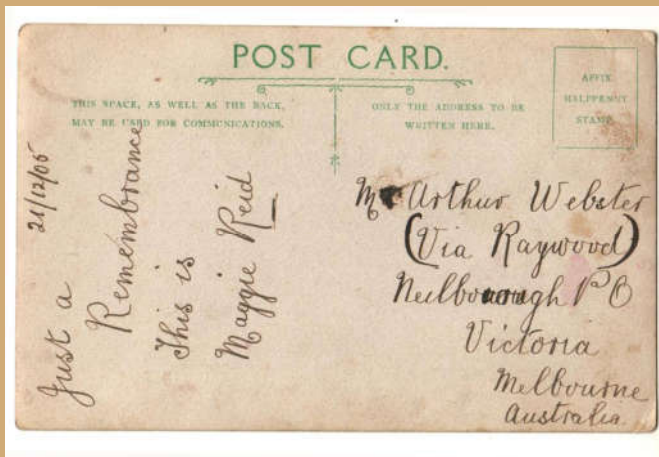 POST CARD.
THIS SPACE, AS WELL AS THE BACK,
MAY BE USED FOR COMMUNICATIONS.
ONLY THE ADDRESS TO BE
WRITTEN HERE.
AFFIX
HALFPENNY
STAMP
21/12/05
Just a
Remembrance
This is
Maggie Reid
Mr Arthur Webster
(Via Raywood)
Neilborough P O
Victoria
Melbourne
Australia.